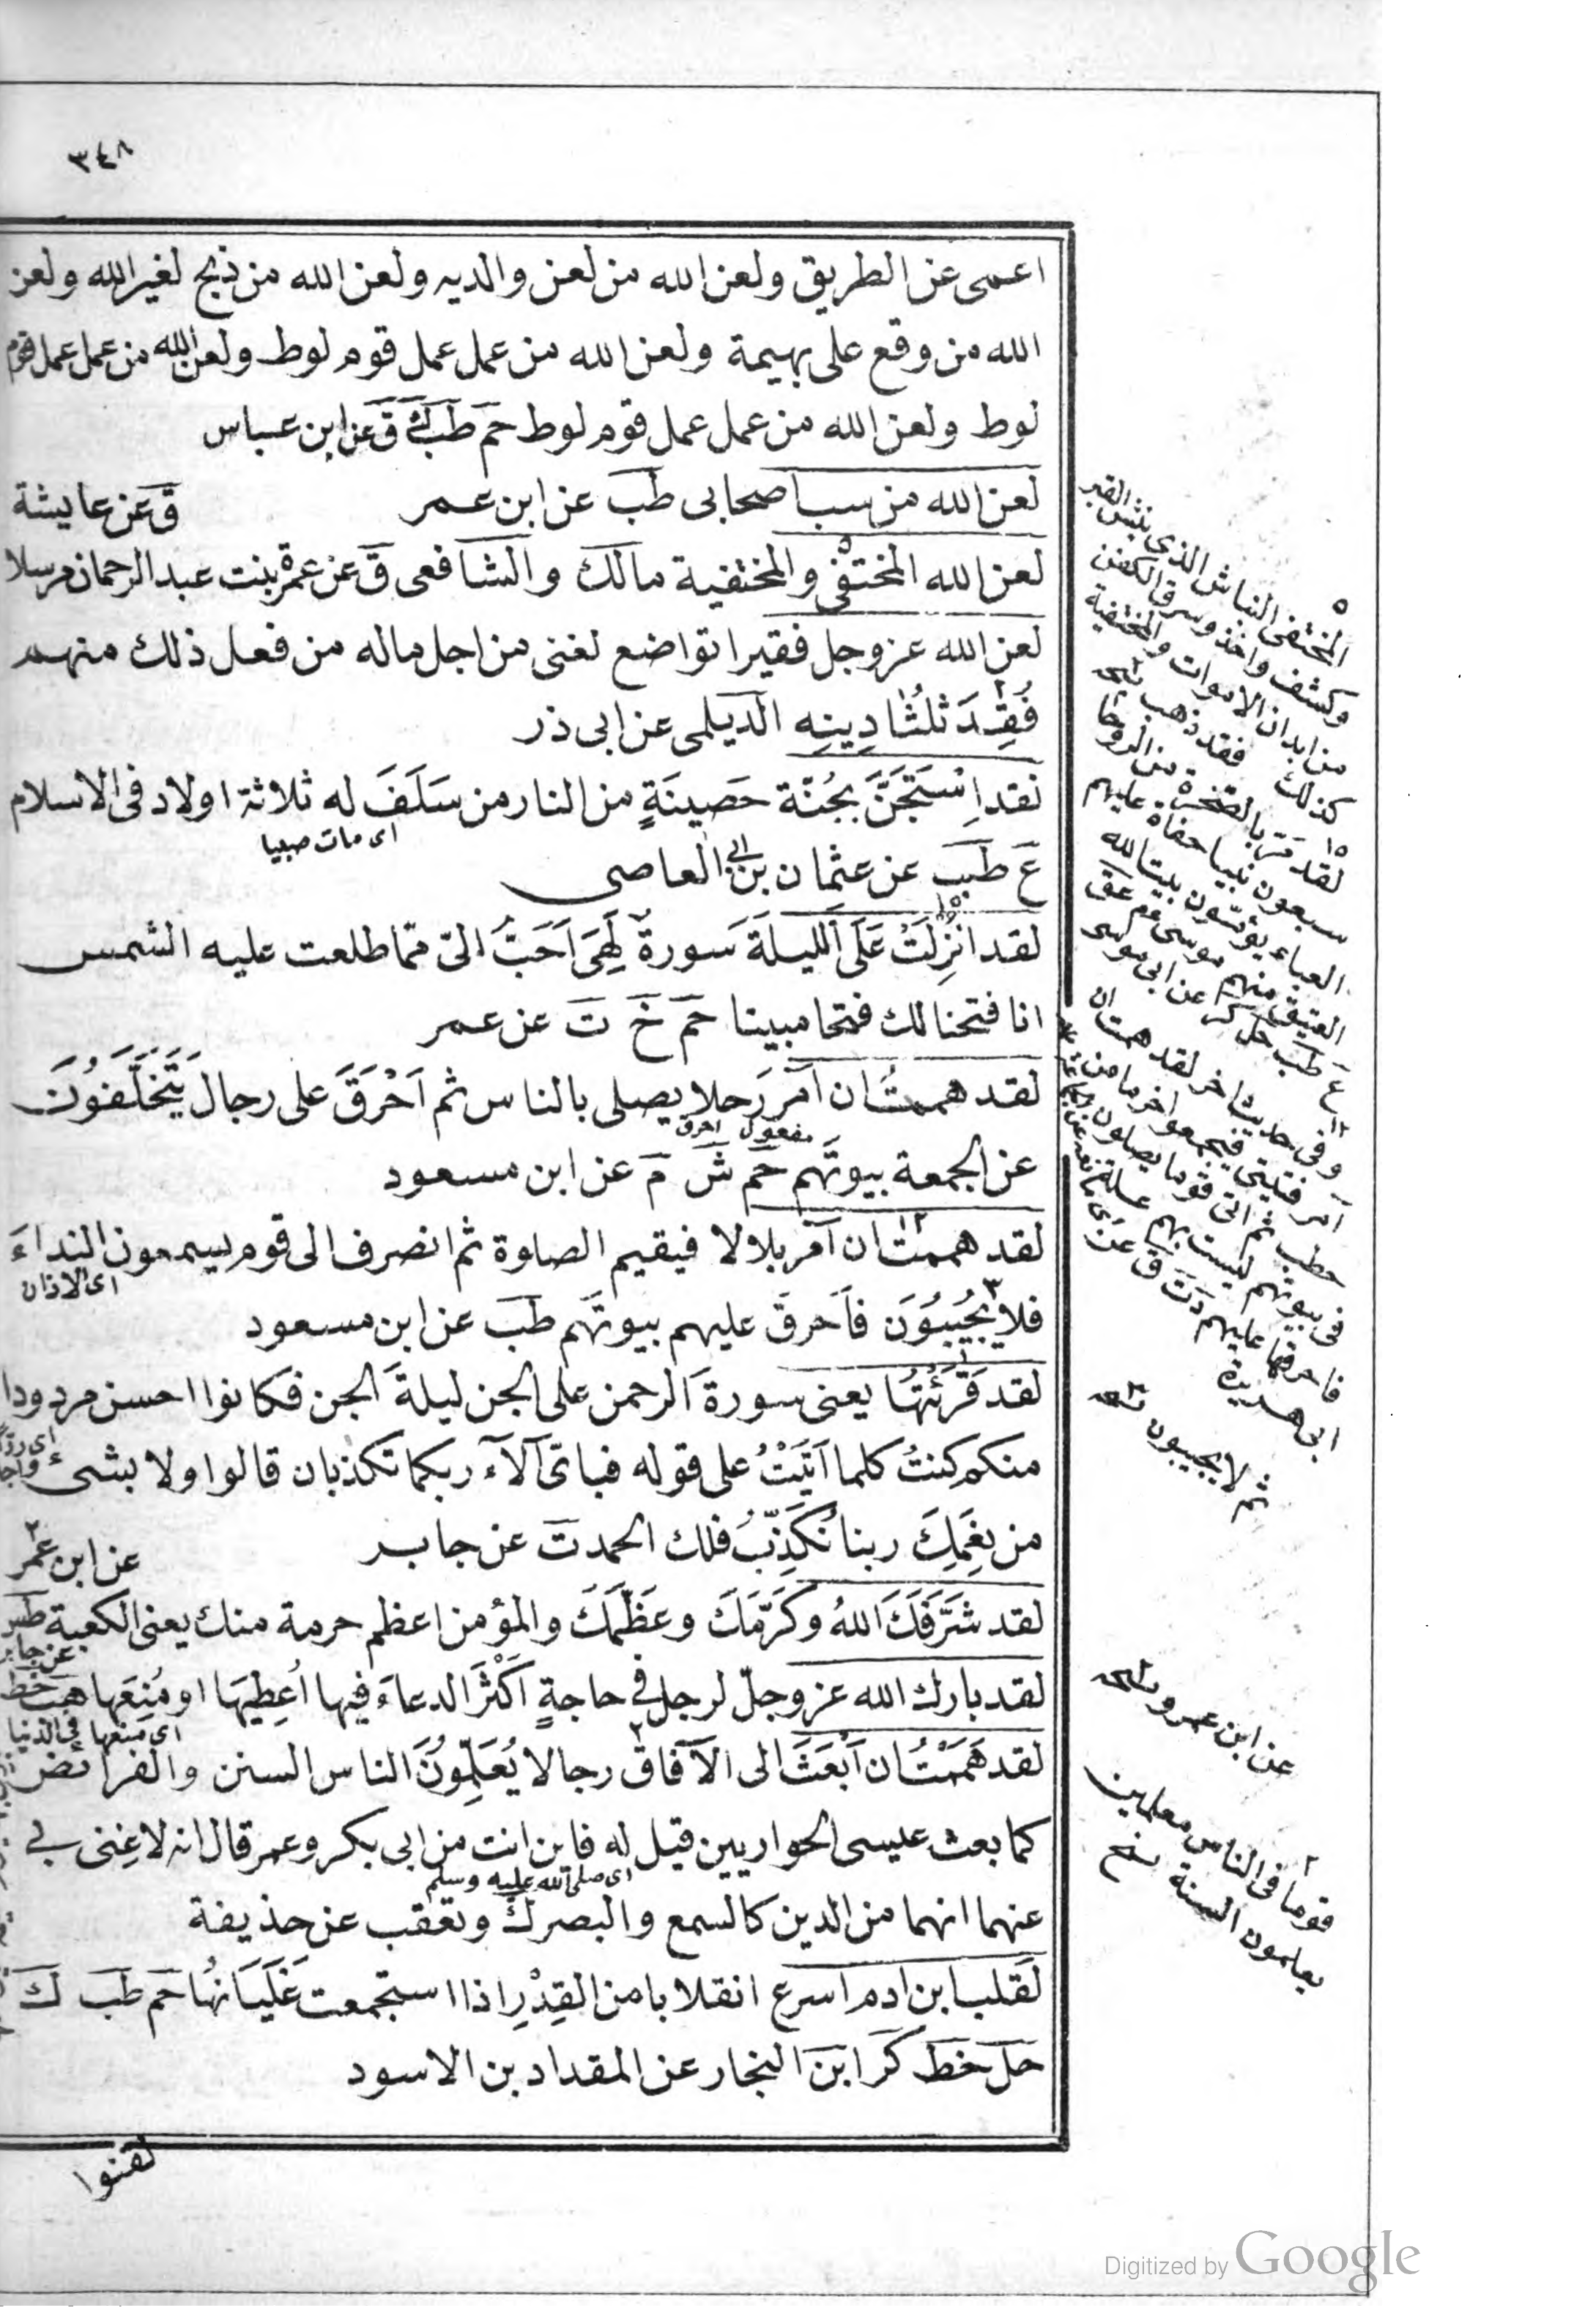 ٣٤٨
اعمى عن الطريق ولعن الله من لعن والديه ولعن الله من ذبح لغير الله ولعن
الله من وقع على بهيمة ولعن الله من عمل عمل قوم لوط ولعن الله من عمل عمل قوم
لوط ولعن الله من عمل عمل قوم لوط حم طب ك ق عن ابن عباس
لعن الله من سب اصحابى طب عن ابن عمر ق عن عايشة
لعن الله المختفى والمختفية مالك والشافعى ق عن عمرة بنت عبد الرحمان مرسلا
لعن الله عز وجل فقيرا تواضع لغنى من اجل ماله من فعل ذلك منهم
فُقِدَ ثلثا دِينِه الديلمى عن ابى ذر
لقد اِسْتَجَنَّ بجُنّة حَصِينَةٍ من النار من سَلَفَ له ثلاثة اولاد فى الاسلام
اى مات صبيا
ع طب عن عثمان بن ابى العاصى
لقد انزِلَتْ عَلَىَّ الليلةَ سَورة لَهِىَ اَحَبُّ الىّ ممّا طلعت عليه الشمس
انا فتحنا لك فتحا مبينا حم خ ت عن عمر
لقد هممتُ ان آمر رجلا يصلى بالناس ثم اَحْرَقَ على رجال يَتَخَلَّفُونَ
مفعول احرق
عن الجمعة بيوتَهم حم ش م عن ابن مسعود
لقد هممتُ ان آمر بلالا فيقيم الصلوة ثم انصرف الى قوم يسمعون النداءَ
اى الاذان
فلا يُجِيبُوُنَ فاَحرقَ عليهم بيوتَهم طب عن ابن مسعود
لقد قَرَئْتُهَا يعنى سورةَ الرحمن على الجن ليلةَ الجن فكانوا احسن مردودا
منكم كنتُ كلما اَتَيْتُ على قوله فباىّ آلآء ربكما تكذبان قالوا ولا بشئ
من نِعَمِكَ ربنا نُكَذِّبُ فلك الحمد ت عن جابر عن ابن عمر
لقد شَرَّفَكَ اللهُ وكَرَّمَكَ وعَظَّمَكَ والمؤمن اعظم حرمة منك يعنى الكعبة طس
عن جابر
لقد بارك الله عز وجلّ لرجل فى حاجةٍ اَكْثَرَ الدعاءَ فيها اُعطِيَهَا او مُنِعَها هب خط
اى منعها فى الدنيا
لقد هَمَمْتُ ان اَبْعَثَ الى الآفاق رجالا يُعَلِّمُونَ الناس السنن والفرائض
كما بعث عيسى الحواريين قيل له فاين انت من ابى بكر وعمر قال انه لا غِنى بى
اى صلى الله عليه وسلم
عنهما انهما من الدين كالسمع والبصر ك وتعقب عن حذيفة
لَقلب ابن ادم اسرع انقلابا من القِدْرِ اذا استجمعت غَلَيَانُها حم طب ك
حل خط كر ابن النجار عن المقداد بن الاسود
لقنوا
٥
المختفى النباش الذى ينبش القبر
وكشف واخذ وسرق الكفن
من ابدان الاموات والمختفية
كذلك
فقد ذهب نسخه
لقد مَرّ بالصخرة من الروحا
سبعون نبيا حفاة عليهم
العباء يؤمّون بيت الله
العتيق منهم موسى
ع طب حل كر عن ابى موسى
وفى حديث اخر لقد هممت ان
آمر فتيتى فيجمعوا حزما من
حطب ثم اتى قوما يصلون
فى بيوتهم ليست بهم علة
فاحرقها عليهم د ت ق عن
ابى هريرة
ثم لا يجيبون نسخه
عن ابن عمرو نسخه
قوما فى الناس معلمين
يعلمون السنة نسخ
Digitized by Google